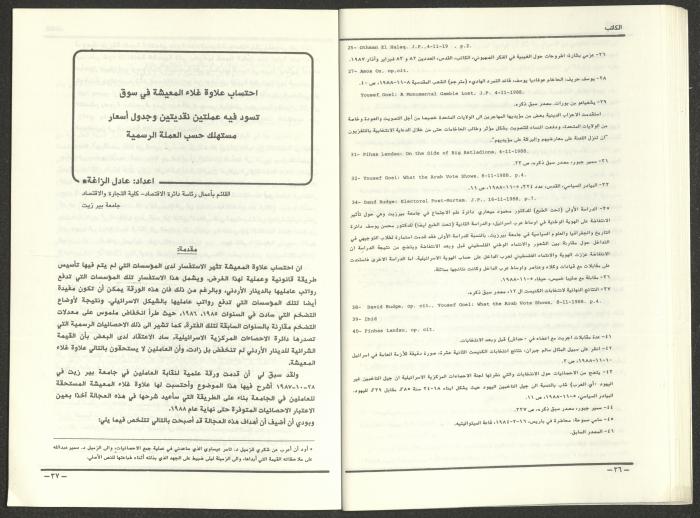 الكاتب
25- Othman El Halaq. J.P.,4-11-19 . p.2.
٢٦- عزمي بشارة، اطروحات حول الغيبية في الفكر الصهيوني، الكاتب، القدس، العددين ٨٢ و ٨٣ فبراير وآذار ١٩٨٧.
27- Amos Oz. op.cit.
٢٨- يوسف حريف، الحاخام عوفاديا يوسف، قائد التمرد الهاديء (مترجم) الشعب المقدسية ٨-١١-١٩٨٨، ص ٤.
Yossef Goel: A Monumental Gamble Lost, J.P. 4-11-1988.
٢٩- يشعياهو بن بورات، مصدر سبق ذكره.
استقدمت الاحزاب الدينية بعض من مؤيديها المهاجرين الى الولايات المتحدة خصيصا من أجل التصويت والعودة وخاصة
من الولايات المتحدة، ودفعت النساء للتصويت بشكل مؤثر وطالب الحاخامات على من خلال الدعاية الانتخابية بالتلفزيون
"ان تنزل اللعنة على معارضيهم والبركة على مؤيديهم".
31- Pihas Landau: On the Side of Big Batladions, 4-11-1988.
٣١- سمير جبور، مصدر سبق ذكره، ص ٣٢.
32- Yossef Goel: What the Arab Vote Shows, 8-11-1988. p.4.
٣٣- البيادر السياسي، القدس، عدد ٣٢٤، ٥-١١-١٩٨٨، ص ١١.
34- Daud Rudge: Electoral Post-Mortam. J.P., 16-11-1988. p.7.
٣٥- الدراسة الأولى (تحت الطبع) للدكتور محمود ميعاري دائرة علم الاجتماع في جامعة بيرزيت وهي حول تأثير
الانتفاضة على الهوية الوطنية في اوساط عرب اسرائيل، والدراسة الثانية (تحت الطبع ايضا) للدكتور محسن يوسف دائرة
التاريخ والجغرافيا والعلوم السياسية في جامعة بيرزيت. بالنسبة للدراسة الأولى فقد قدمت استمارة لطلاب التوجيهي في
الداخل حول مقارنة بين الشعور والانتماء الوطني الفلسطيني قبل وبعد الانتفاضة ويتضح من نتيجة الدراسة ان
الانتفاضة عززت الهوية والانتماء الفلسطيني لعرب الداخل على حساب الهوية الاسرائيلية. اما الدراسة الاخرى فاعتمدت
على مقابلات مع قيادات وكلاء وعناصر واوساط عرب الداخل وكانت نتائجها مماثلة.
٣٦- مقابلة مع صليبا خميس، حيفا، ٥-١١-١٩٨٨.
٣٧- النتائج النهائية لانتخابات الكنيست الـ ١٢، مصدر سبق ذكره.
38- David Rudge, op. cit.. Yossef Goel: What the Arab Vote Shows, 8-11-1988. p.4.
39- Ibid
40- Pinhas Landau, op. cit.
٤١- عدة مقابلات اجريت مع اعضاء في - حداش قبل وبعد الانتخابات.
٤٢- انظر على سبيل المثال سالم جبران، نتائج انتخابات الكنيست الثانية عشرة، صورة دقيقة للأزمة العامة في اسرائيل
١٠-١١-١٩٨٨.
٤٣- يتضح من الاحصائيات حول الانتخابات والتي نشرتها لجنة الاحصاءات المركزية الاسرائيلية ان جيل الناخبين غير
اليهود - أي العرب) شاب بالنسبة الى جيل الناخبين اليهود حيث يشكل ابناء ١٨-٢٤ سنة ٢٨٪ مقابل ١٩٪ لليهود.
البيادر السياسي، ٥-١١-١٩٨٨، ص ١١.
٤٤- سمير جبور، مصدر سبق ذكره، ص ٣٢٧.
٤٥- سامي سموحة، محاضرة في باريس، ١٦-٣-١٩٨٤، قاعة الميتواليتيه.
٤٦- المصدر السابق.
-٣٦-
احتساب علاوة غلاء المعيشة في سوق
تسود فيه عملتين نقديتين وجدول أسعار
مستهلك حسب العملة الرسمية
اعداد: عادل الزاغة*
القائم بأعمال رئاسة دائرة الاقتصاد- كلية التجارة والاقتصاد
جامعة بير زيت
مقدمة:
ان احتساب علاوة المعيشة تثير الاستفسار لدى المؤسسات التي لم يتم فيها تأسيس
طريقة قانونية وعملية لهذا الغرض. ويشمل هذا الاستفسار تلك المؤسسات التي تدفع
رواتب عامليها بالدينار الأردني، وبالرغم من ذلك فان هذه الورقة يمكن أن تكون مفيدة
أيضا لتلك المؤسسات التي تدفع رواتب عامليها بالشيكل الاسرائيلي. ونتيجة لأوضاع
التضخم التي سادت في السنوات ١٩٨٥، ١٩٨٦، حيث طرأ انخفاض ملموس على معدلات
التضخم مقارنة بالسنوات السابقة لتلك الفترة، كما تشير الى ذلك الاحصائيات الرسمية التي
تصدرها دائرة الاحصاء المركزية الاسرائيلية، ساد الاعتقاد لدى البعض بأن القيمة
الشرائية للدينار الأردني لم تنخفض بل زادت، وأن العاملين لا يستحقون بالتالي علاوة غلاء
المعيشة.
ولقد سبق لي أن قدمت ورقة علمية لنقابة العاملين في جامعة بير زيت في
٢٨-١٠-١٩٨٧ أشرح فيها هذا الموضوع واحتسبت لها علاوة غلاء المعيشة المستحقة
للعاملين في الجامعة بناء على الطريقة التي سأعيد شرحها في هذه العجالة آخذا بعين
الاعتبار الاحصائيات المتوفرة حتى نهاية عام ١٩٨٨.
وبودي أن أضيف أن أهداف هذه العجالة قد أصبحت بالتالي تتلخص فيما يلي:
* أود أن أعرب عن شكري للزميل د. ثامر عيساوي الذي ساعدني في عملية جمع الاحصائيات، والى الزميل د. سمير عبدالله
على ملاحظاته القيمة التي أبداها، والى الزميلة ليلى ضبيط على الجهد الذي بذلته أثناء طباعتها للنص الأصلي.
-٣٧-